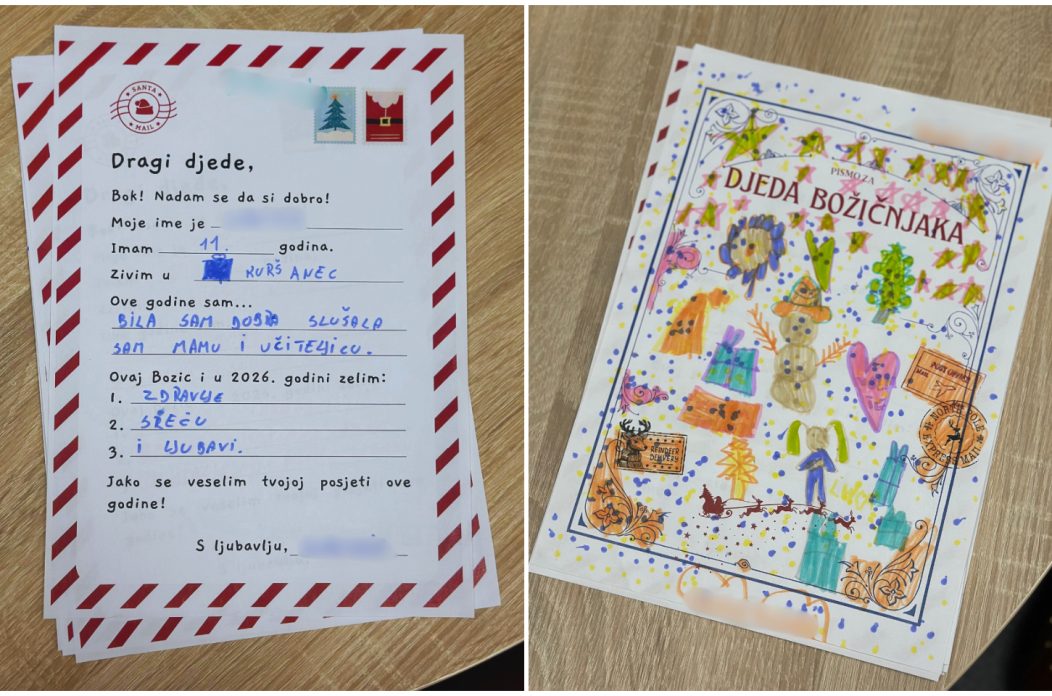 SANTA
MAIL
Dragi djede,
Bok! Nadam se da si dobro!
Moje ime je
Imam 11. godina.
Zivim u KURŠANEC
Ove godine sam...
BILA SAM DOBRA SLUŠALA
SAM MAMU I UČITELJICU.
Ovaj Bozic i u 2026. godini zelim:
1. ZDRAVLJE
2. SREĆU
3. i LJUBAVI.
Jako se veselim tvojoj posjeti ove
godine!
S ljubavlju,
PISMO ZA
DJEDA BOŽIČNJAKA
POST OFFICE
MAIL
NORTH POLE
EXPRESS MAIL
REINDEER
DELIVERY